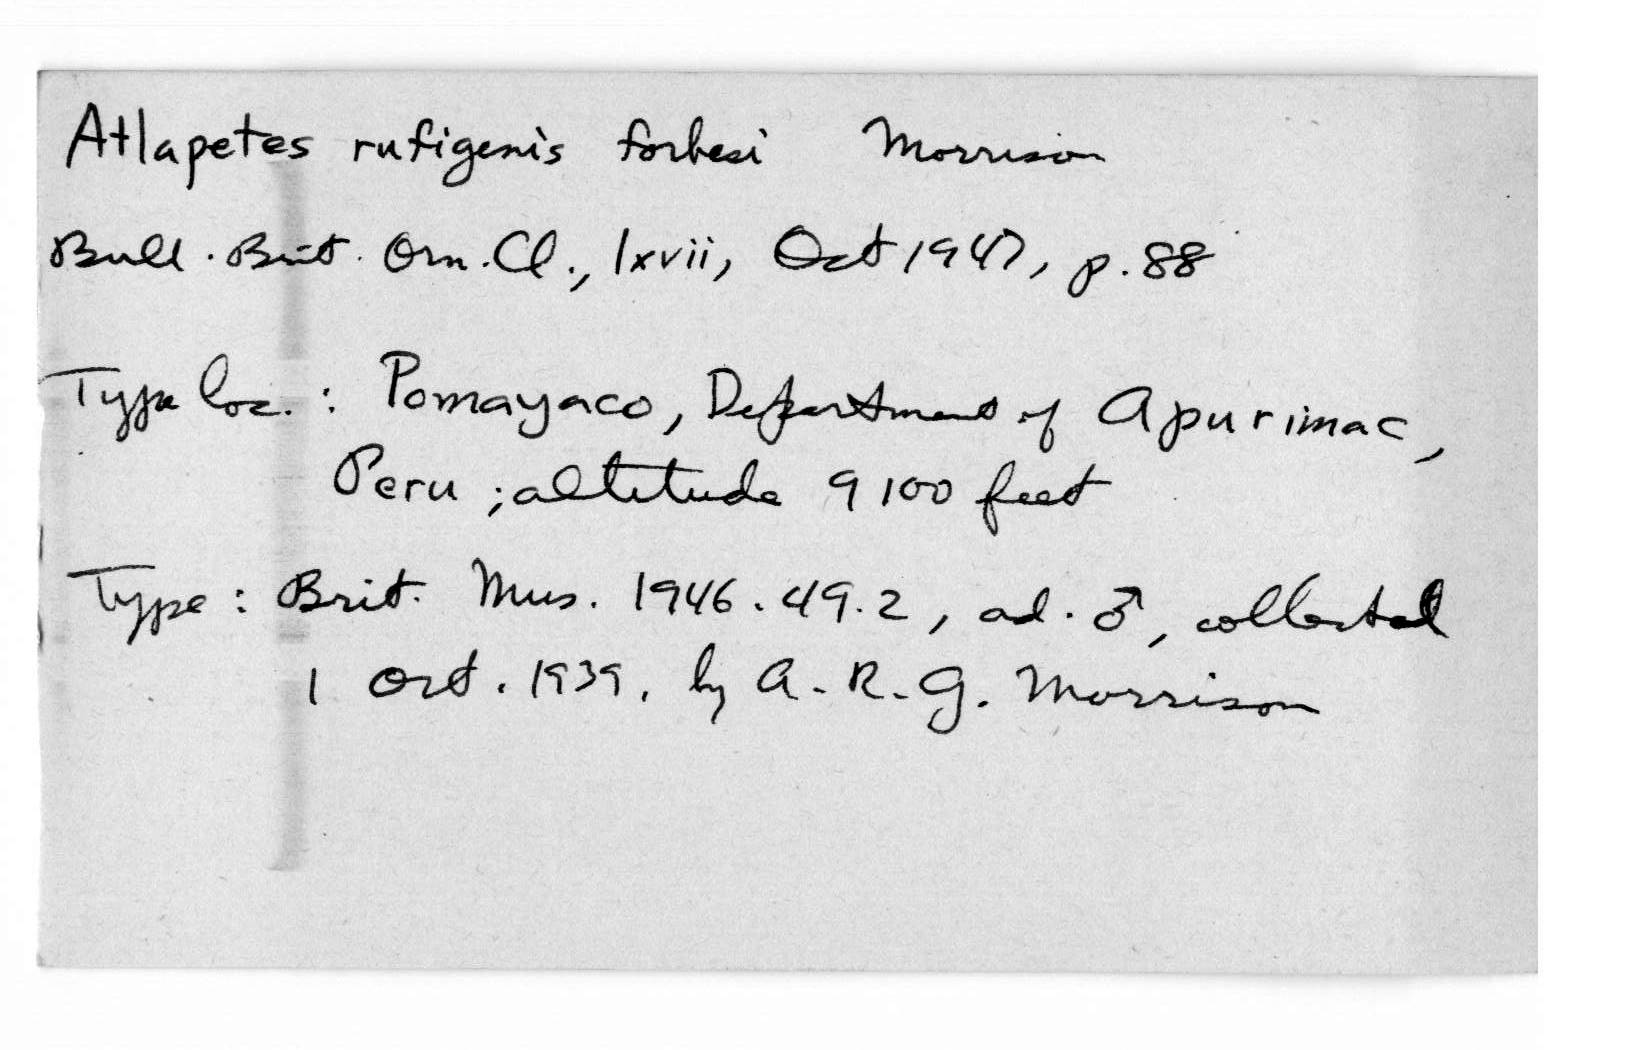 Atlapetes rufigenis forbesi Morrison
Bull. Brit. Orn. Cl., lxvii, Oct 1947, p. 88
Type loc. : Pomayaco, Department of Apurimac,
Peru ; altitude 9100 feet
Type : Brit. Mus. 1946.49.2, ad. ♂, collected
1 Oct. 1939, by A. R. G. Morrison